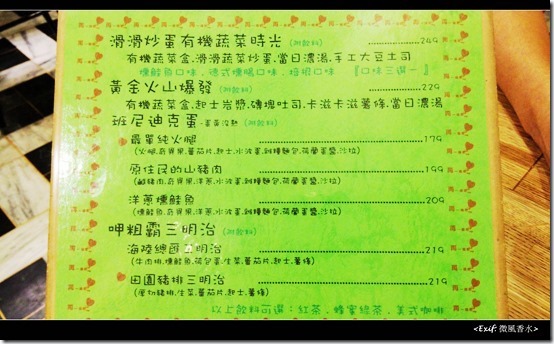 滑滑炒蛋有機蔬菜時光 (附飲料) 249
有機蔬菜盒.滑滑蔬菜炒蛋.當日濃湯.手工大豆土司
燻鮭魚口味．德式燻腸口味．培根口味 『口味三選一』
黃金火山爆發 (附飲料) 229
有機蔬菜盒.起士岩漿.磚塊吐司.卡滋卡滋薯條.當日濃湯
班尼迪克蛋 (附飲料)
最單純火腿 179
(火腿.奇異果.蕃茄片.起士.水波蛋.雜糧麵包.荷蘭蛋醬.沙拉)
原住民的山豬肉 199
(鹹豬肉.奇異果.洋蔥.水波蛋.雜糧麵包.荷蘭蛋醬.沙拉)
洋蔥燻鮭魚 209
(燻鮭魚.奇異果.洋蔥.水波蛋.雜糧麵包.荷蘭蛋醬.沙拉)
呷粗霸三明治 (附飲料)
海陸總匯三明治 219
(牛肉排.燻鮭魚.荷包蛋.生菜.蕃茄片.起士.薯條)
田園豬排三明治 219
(厚切豬排.生菜.蕃茄片.起士.薯條)
以上飲料可選：紅茶．蜂蜜綠茶．美式咖啡
<Exif: 微風香水>